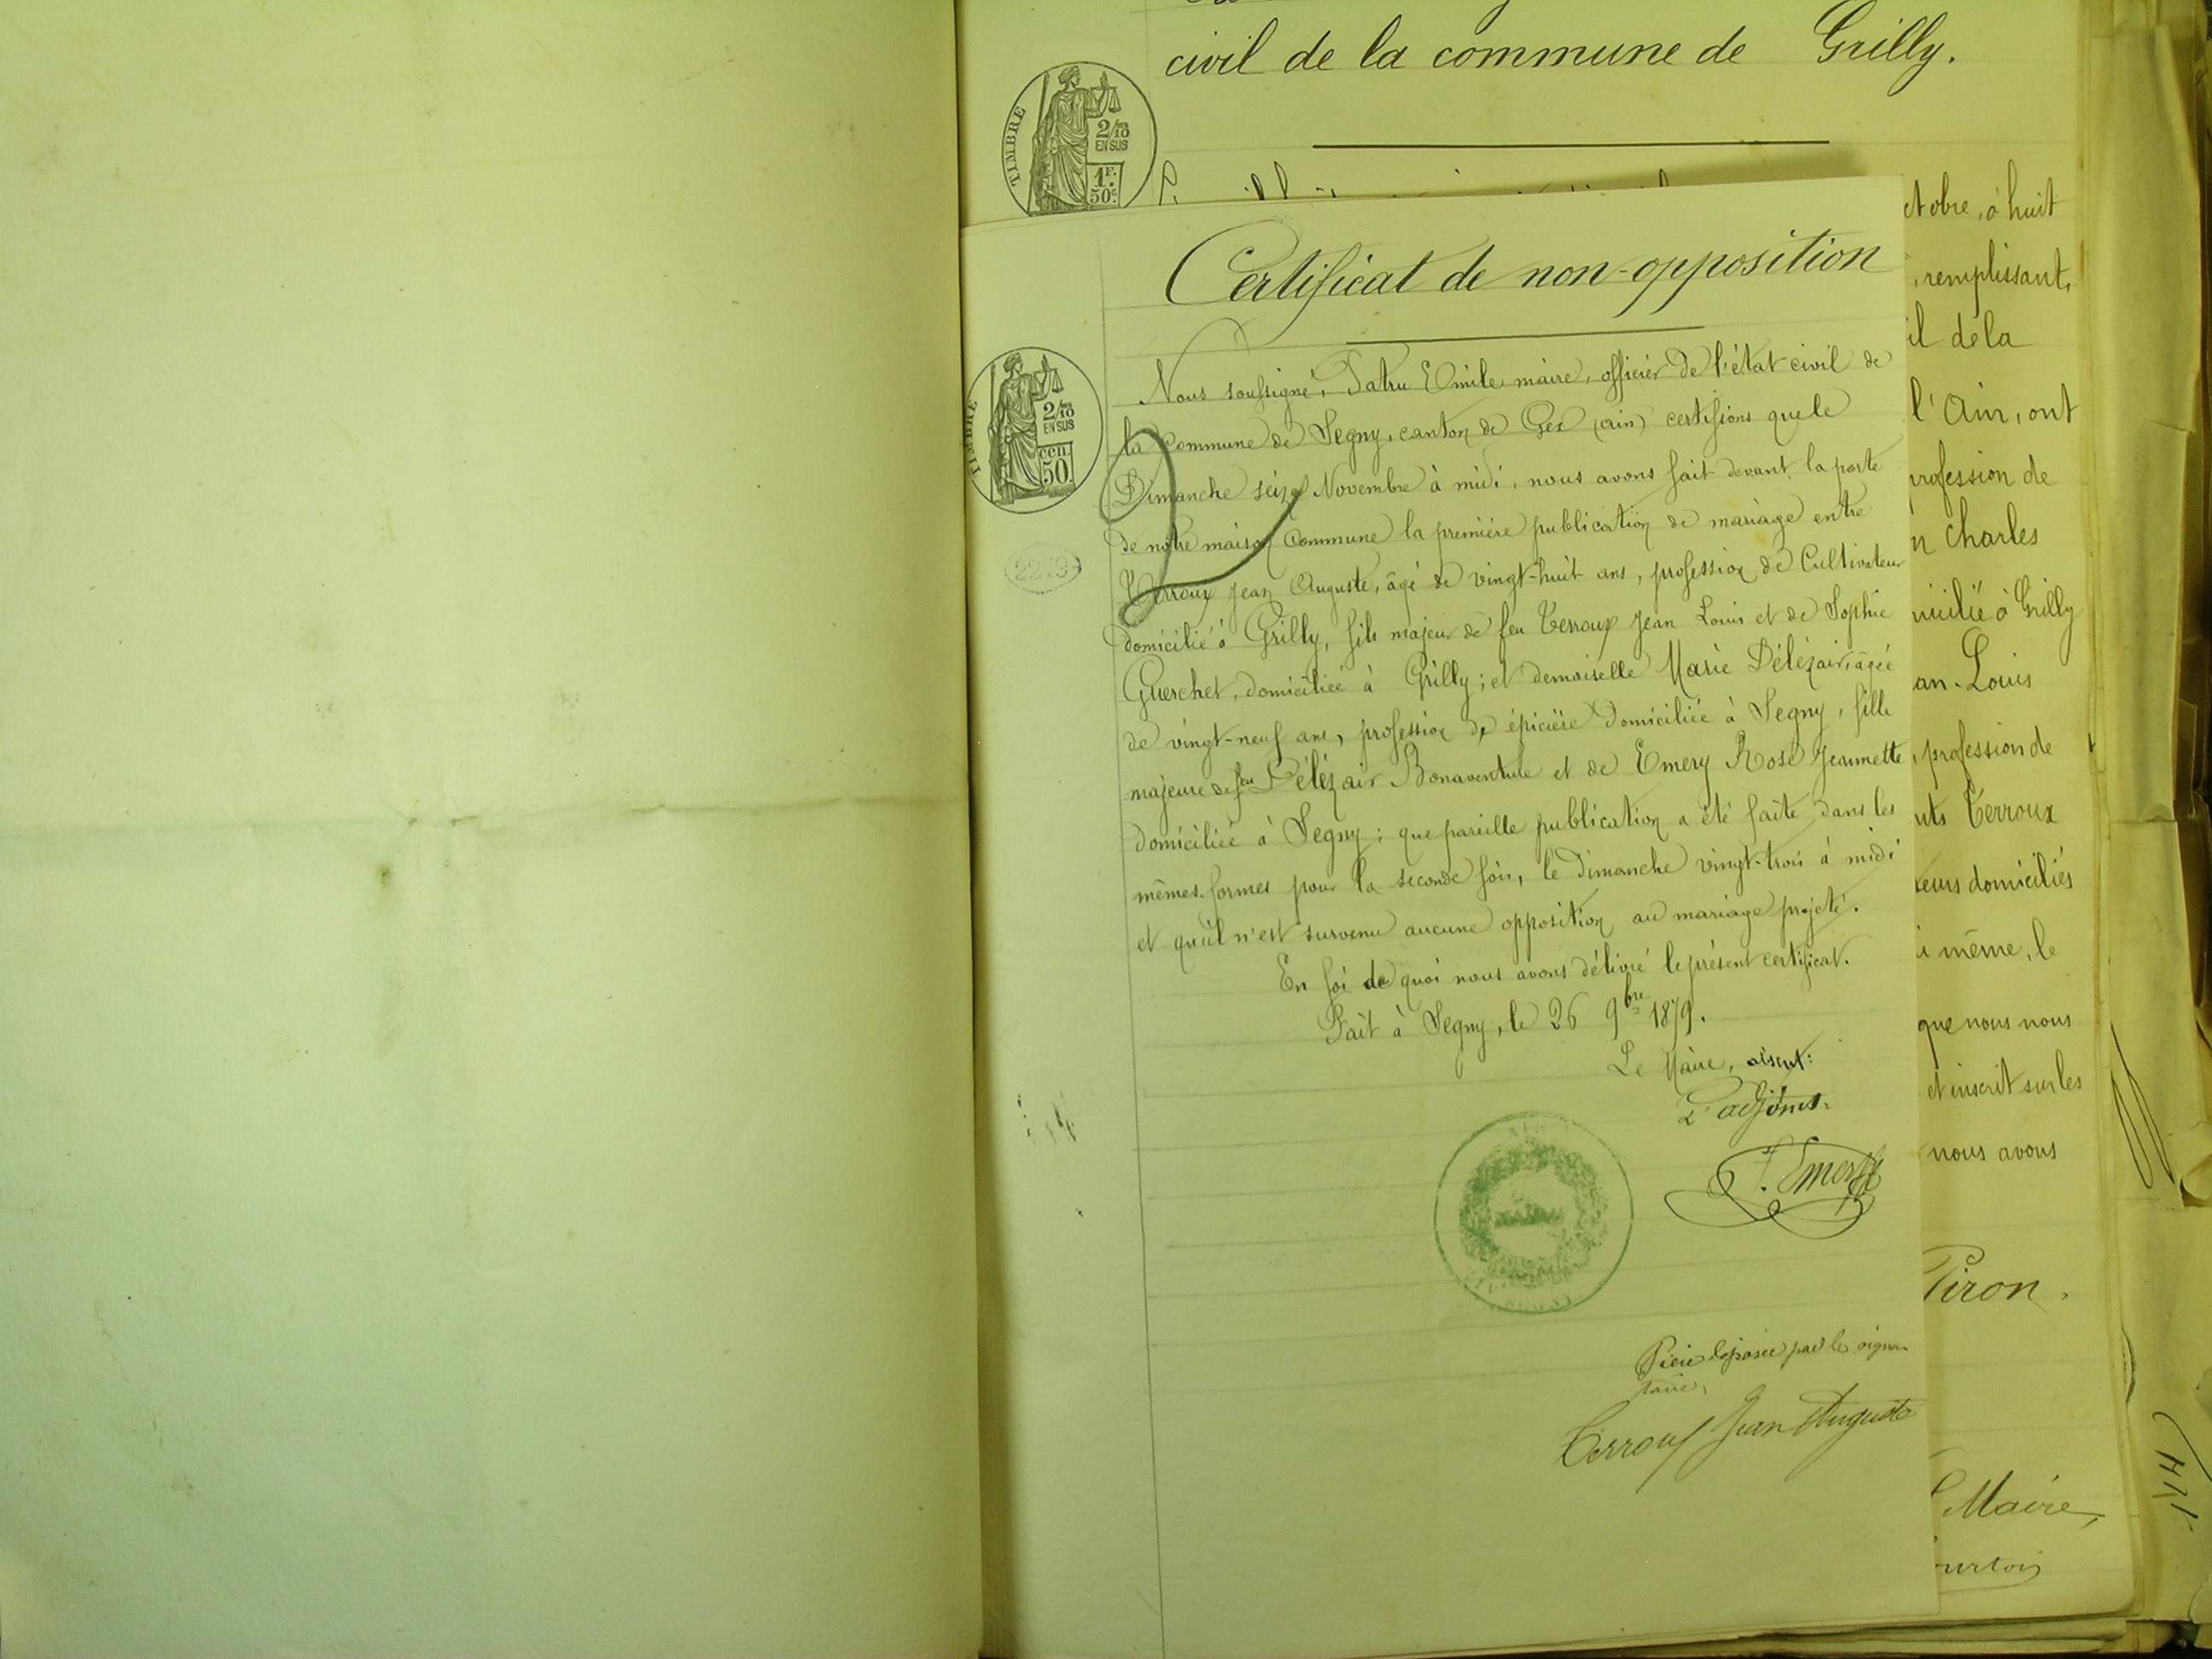 civil de la commune de Grilly.
TIMBRE
2/10
EN SUS
1F.
50c.
ctobre, à huit
, remplissant,
il de la
l'Ain, ont
profession de
n Charles
micilié à Grilly
an-Louis
, profession de
nts Terroux
teurs domiciliés
i même, le
que nous nous
et inscrit sur les
nous avons
Piron.
Maire,
ourtois
Certificat de non-opposition
TIMBRE
2/10
EN SUS
cen.
50.
2279
Nous soussigné, Patru Emile maire, officier de l'état civil de
la Commune de Segny, canton de Gex (ain) certifions que le
Dimanche seize Novembre à midi, nous avons fait devant la porte
de notre maison Commune la première publication de mariage entre
Terroux Jean Auguste, âgé de vingt-huit ans, profession de Cultivateur
domicilié à Grilly, fils majeur de feu Terroux Jean Louis et de Sophie
Guerchet, domiciliée à Grilly; et demoiselle Marie Délézair, âgée
de vingt-neuf ans, profession de épicière domiciliée à Segny, fille
majeure de feu Délézair Bonaventure et de Emery Rose Jeannette
domiciliée à Segny; que pareille publication a été faite dans les
mêmes formes pour la seconde fois, le Dimanche vingt-trois à midi
et qu'il n'est survenu aucune opposition au mariage projeté.
En foi de quoi nous avons délivré le présent certificat.
Fait à Segny, le 26 9bre 1879.
Le Maire, absent:
L'adjoint.
Emery
AIN
Pièce déposée par le signa-
taire,
Terroux Jean Auguste